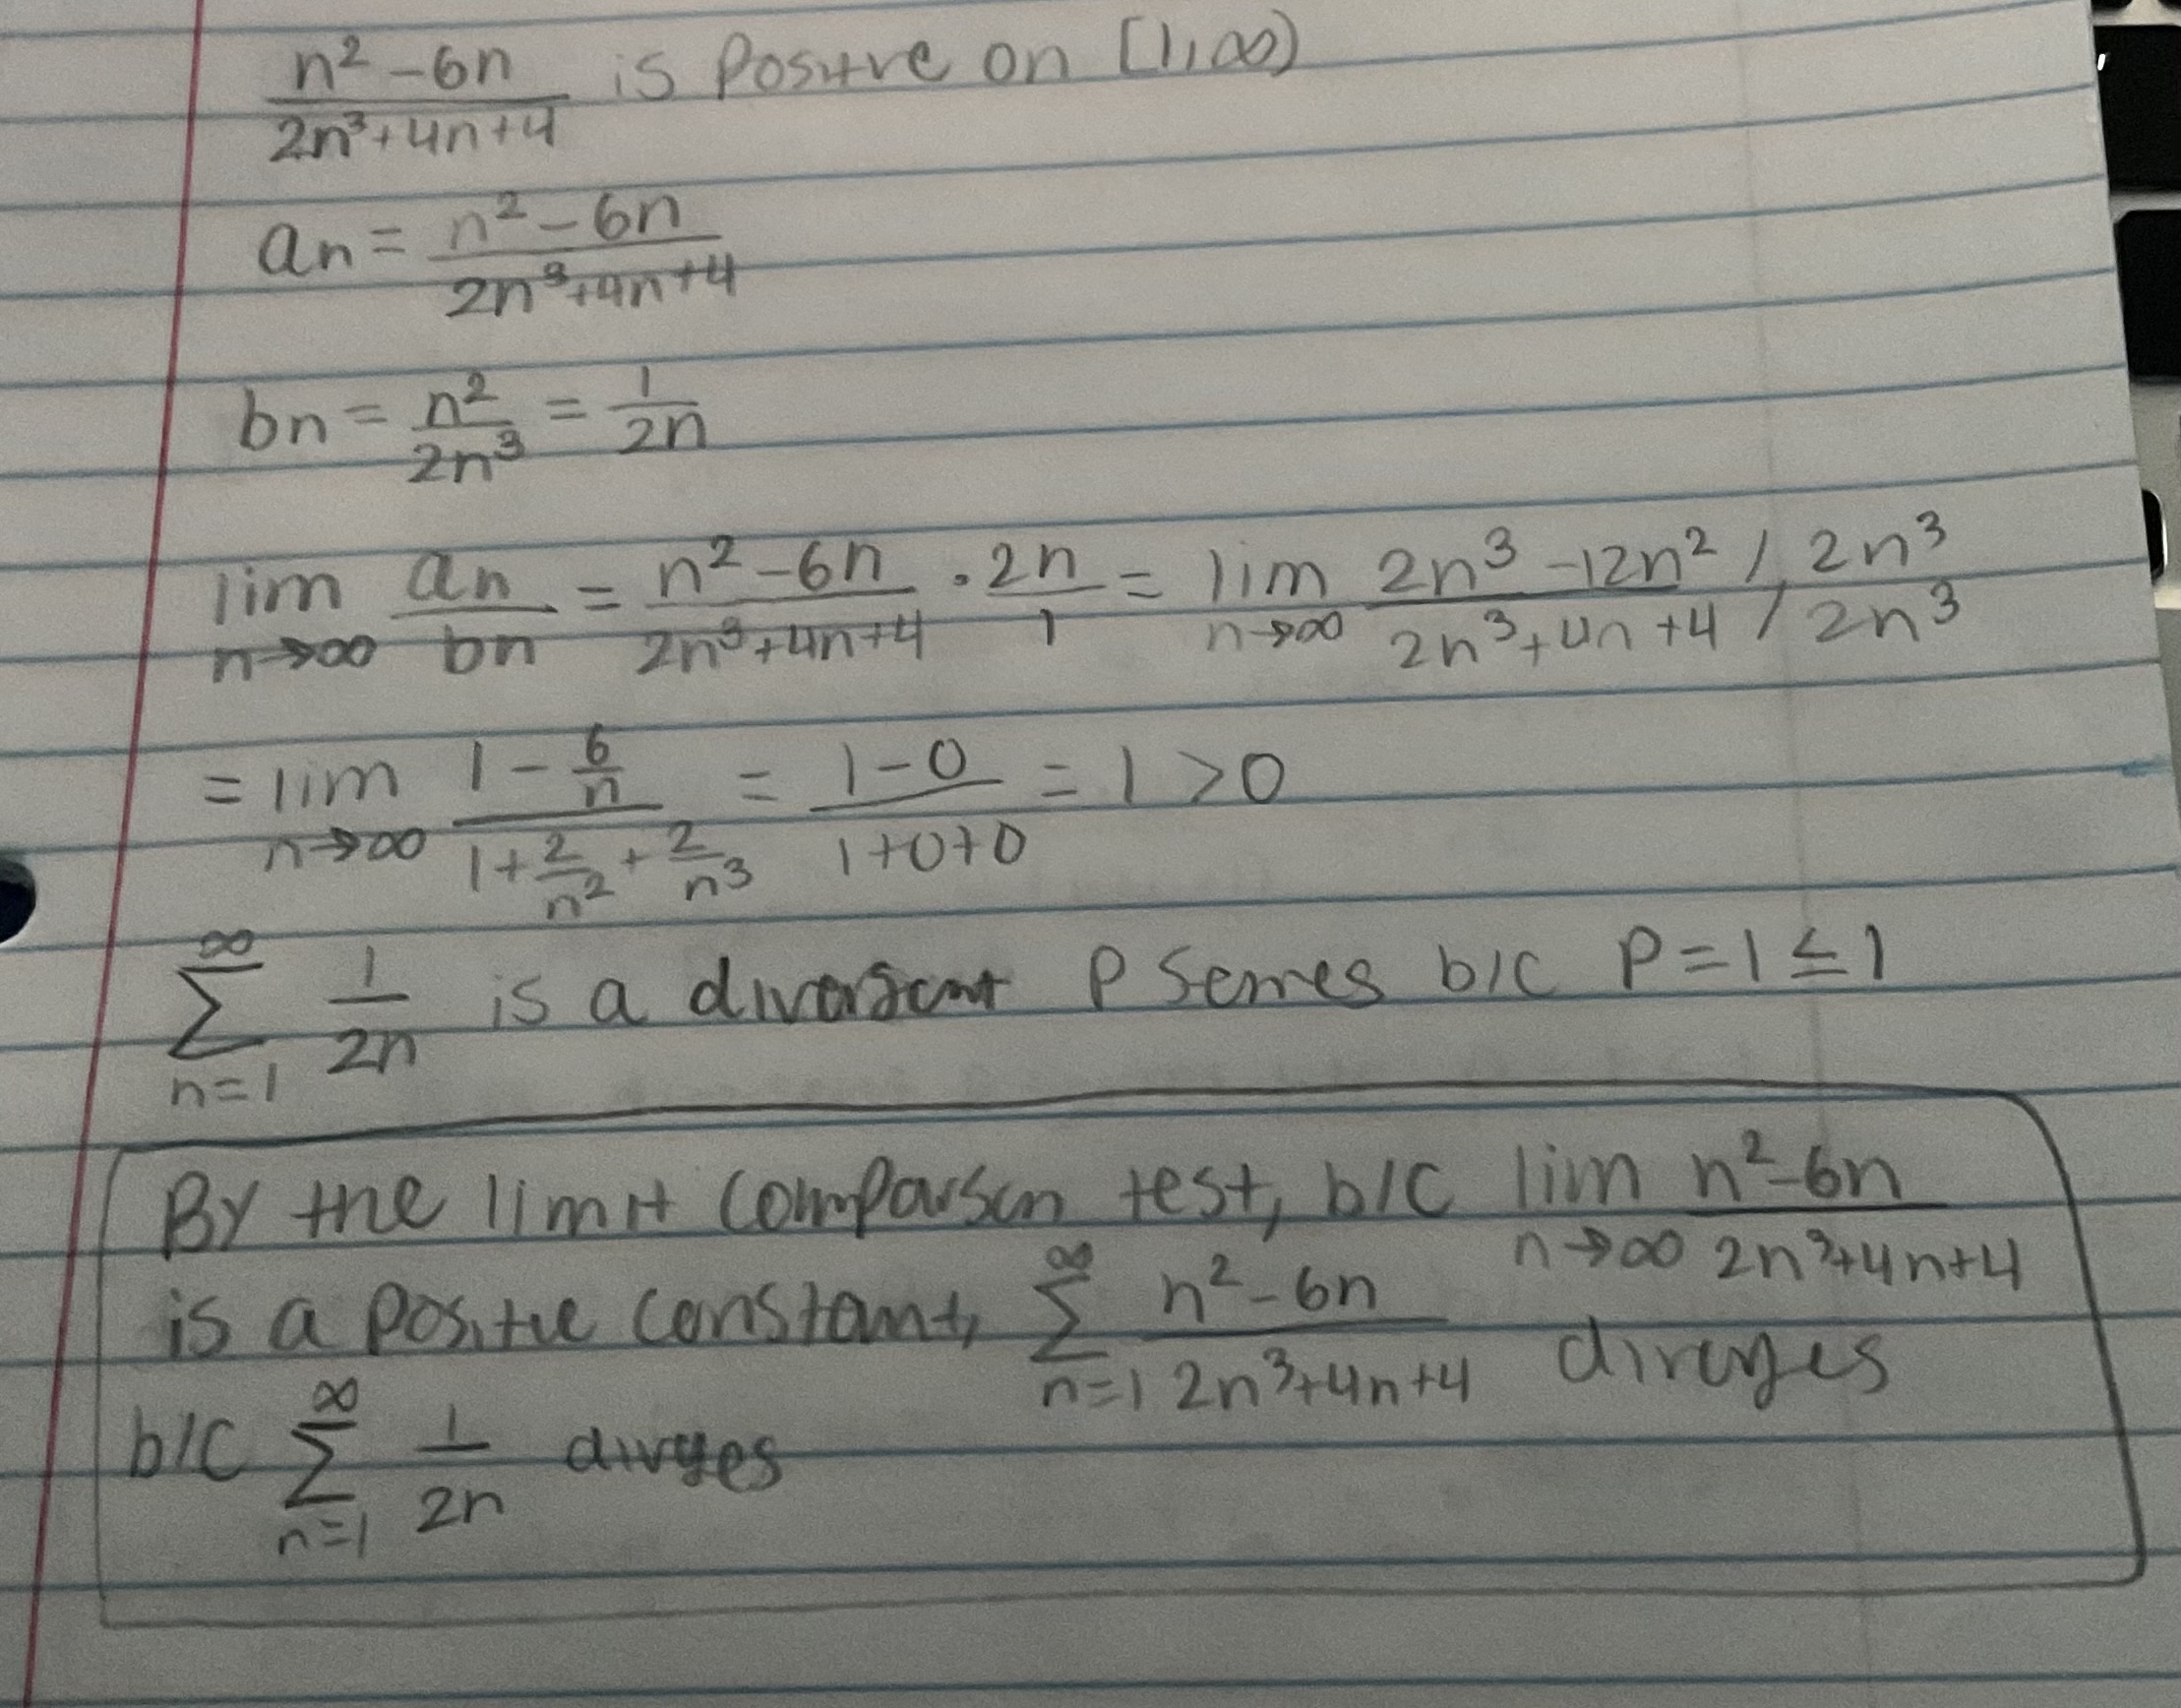 n² - 6n / 2n³+4n+4 is Positive on [1,∞)
an = n² - 6n / 2n³+4n+4
bn = n² / 2n³ = 1 / 2n
lim n→∞ an / bn = n² - 6n / 2n³+4n+4 · 2n / 1 = lim n→∞ 2n³ - 12n² / 2n³+4n+4 / 2n³ / 2n³
= lim n→∞ 1 - 6/n / 1 + 2/n² + 2/n³ = 1-0 / 1+0+0 = 1 > 0
∞ Σ n=1 1 / 2n is a divergent P Series b/c P = 1 ≤ 1
By the limit comparison test, b/c lim n→∞ n²-6n / 2n³+4n+4
is a positive constant, ∞ Σ n=1 n² - 6n / 2n³+4n+4 diverges
b/c ∞ Σ n=1 1 / 2n diverges